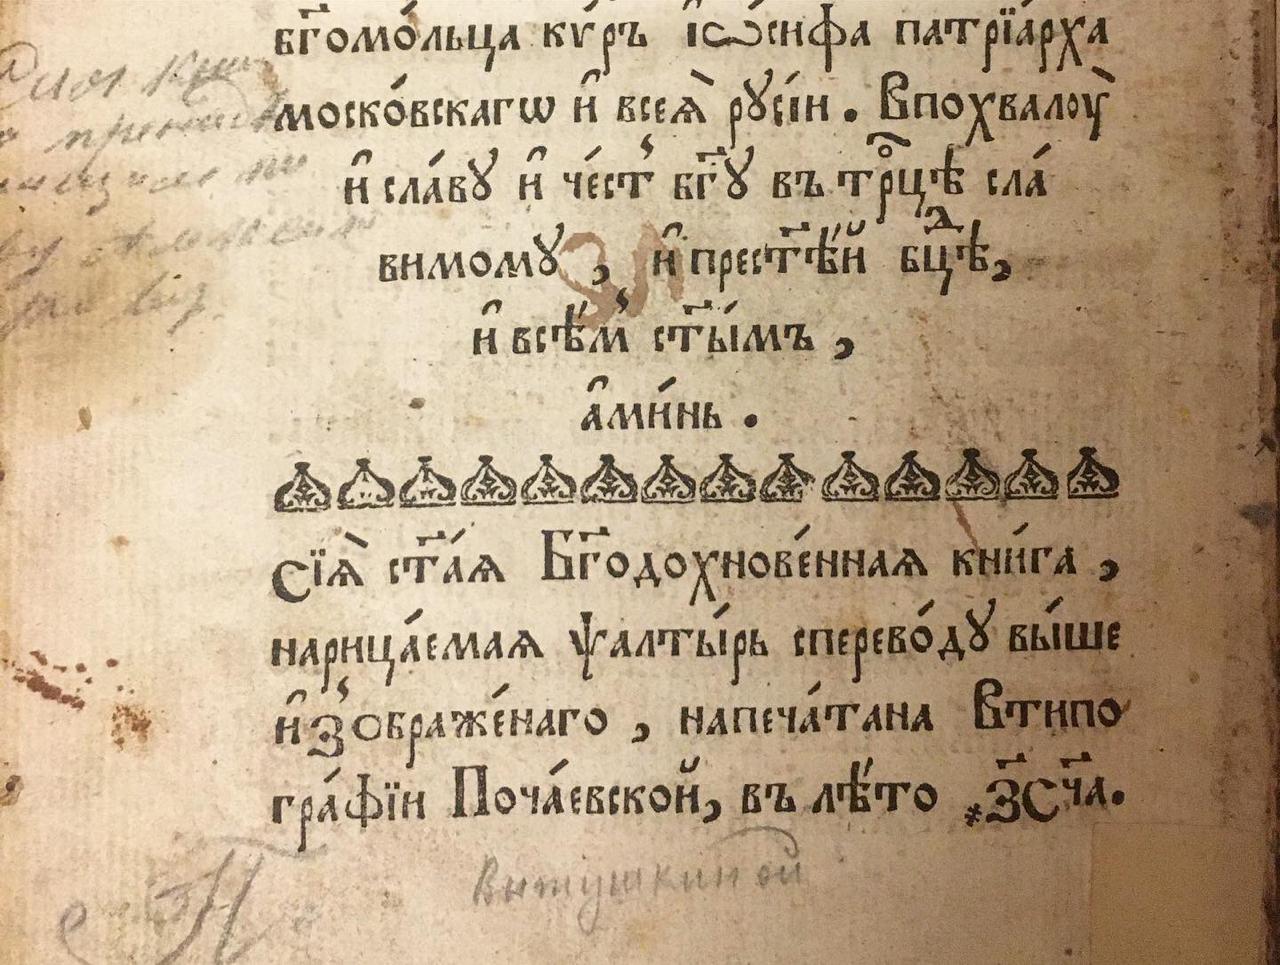 бг҃омо́льца кѵ́ръ і҆ѡ́сифа патрїа́рха
моско́вскагѡ и҆ всеѧ̀ рꙋсі́и. Впохвалꙋ̀
и҆ сла́вꙋ и҆ че́ст̾ бг҃ꙋ въ трⷪ҇цѣ сла́
вимомꙋ, и҆ прест҃ѣ́й бцⷣѣ,
и҆ всѣ́м̾ ст҃ы́мъ,
а҆ми́нь.
Сїѧ̀ ст҃а́ѧ Бг҃одохнове́ннаѧ кни́га,
нарица́емаѧ ѱалты́рь сперево́дꙋ вы́ше
и҆з̾ображе́наго, напеча́тана Втипо
гра́фїи Поча́евской, въ лѣ́то ҂зс҃ч҃а.
Витушкиной